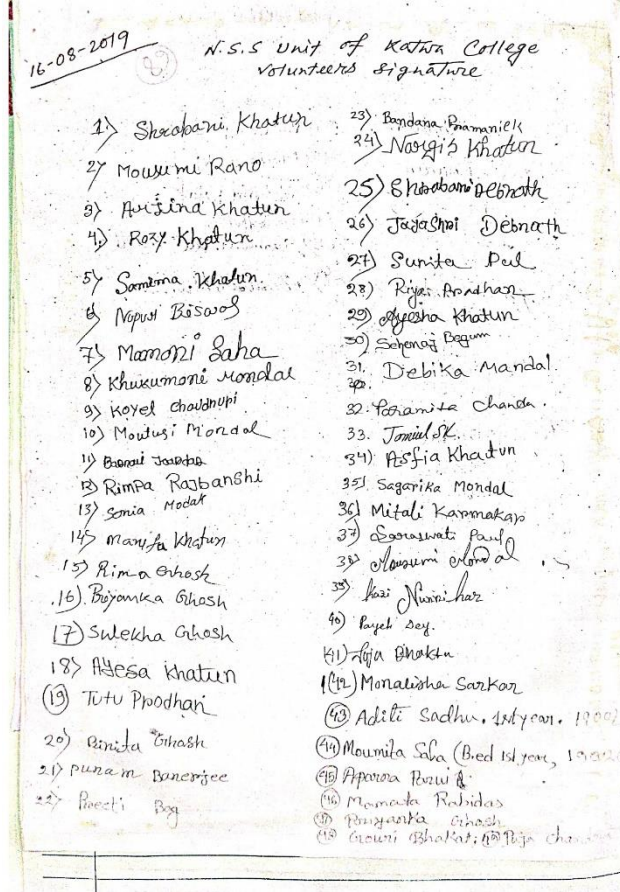 16-08-2019
N.S.S Unit of Katwa College
Volunteers Signature
1) Shrabani Khatun
2) Mousumi Rano
3) Arjina Khatun
4) Rozy Khatun
5) Samima Khatun
6) Nupur Biswas
7) Mamoni Saha
8) Khukumoni Mondal
9) Koyel Choudhuri
10) Moutusi Mondal
11)
12) Rimpa Rajbanshi
13) Sonia Modak
14) Manifa Khatun
15) Rima Ghosh
16) Priyanka Ghosh
17) Sulekha Ghosh
18) Ayesa Khatun
19) Tutu Proodhan
20) Binita Ghosh
21) Punam Banerjee
22) Preeti Bag
23) Bandana Pramaniek
24) Nargis Khatun
25) Shrabani Debnath
26) Jayashri Debnath
27) Sunita Pal
28) Riya Pradhan
29) Ayesha Khatun
30) Sehenaj Begum
31. Debika Mandal
32. Paramita Chandra.
33. Jomiul SK.
34) Asfia Khatun
35) Sagarika Mondal
36) Mitali Karmakar
37) Saraswati Paul
38) Mousumi Mondal
39) Kazi Nurnihar
40) Payel Dey.
41) Puja Bhakta
42) Monalisha Sarkar
43) Aditi Sadhu. 1st year.
44) Moumita Saha (B.ed 1st year,
45) Aparna
46) Mamata Rabidas
47) Priyanka Ghosh
48) Gouri Bhakat; 49) Puja